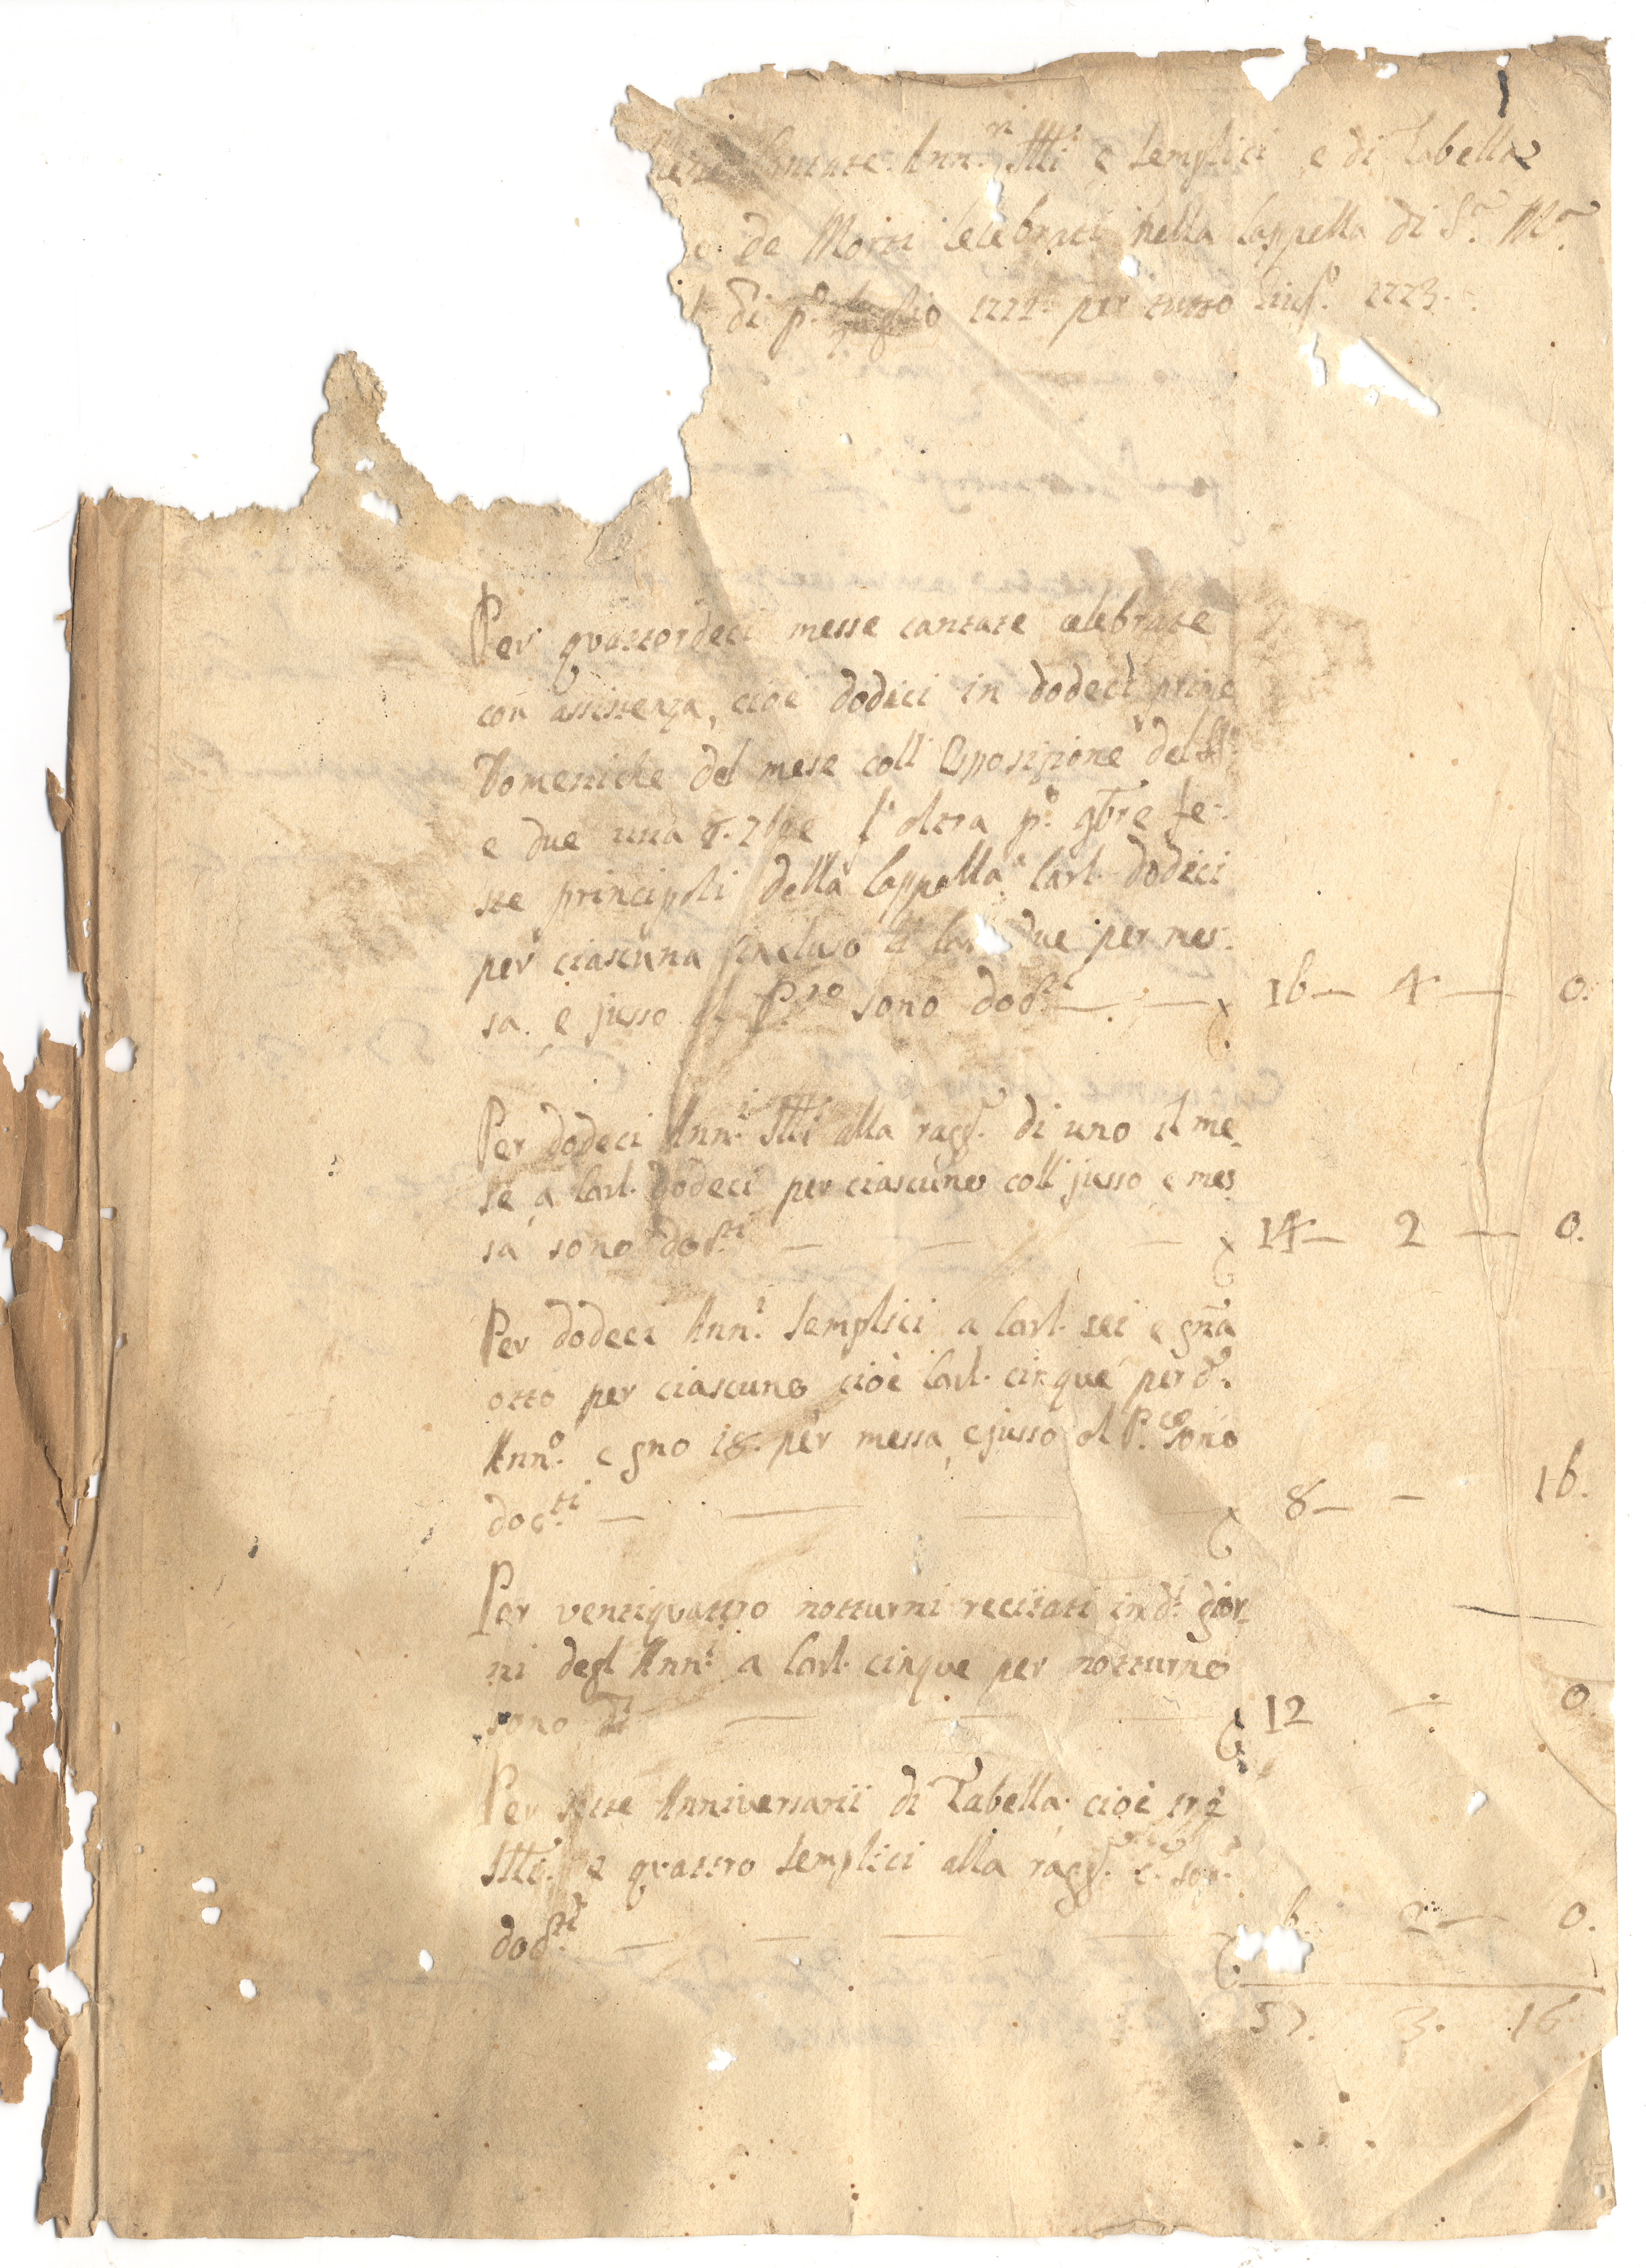 1
cantate Ann.ri stti e semplici e di Tabella
e de Morti celebrati nella Cappella di S.a M.a
di p.o luglio 1722 per tutto giug.o 1723.
Per quattordeci messe cantate celebrate
con assistenza, cioè dodici in dodeci prime
Domeniche del mese coll' Esposizione del
e due una 8. 7bre l'altra p.o 9bre fe-
ste principali della Cappella a Carl. dodici
per ciascuna incluso due per mes-
sa e jusso al P.ro sono doc.ti — — 16 — 4 — 0.
Per dodeci Ann.ri stti alla ragg.e di uno il me-
se a Carl. dodeci per ciascuno coll jusso e mes
sa sono doc.ti — — — 14 — 2 — 0.
Per dodeci Ann.ri semplici a Carl. sei e gna
otto per ciascuno cioè Carl. cinque per d.o
Ann.o e gno 18. per messa e jusso al P.co sono
doc.ti — — — — 8 — — 16.
Per ventiquattro notturni recitati in d.i gior-
ni degl Ann.ri a Carl. cinque per notturno
sono d.ti — — — 12 — 0.
Per sette Anniversarii di Tabella cioè tre
stti e quattro semplici alla ragg.e
doc.ti — — — — 6 2 — 0.
57. 3. 16